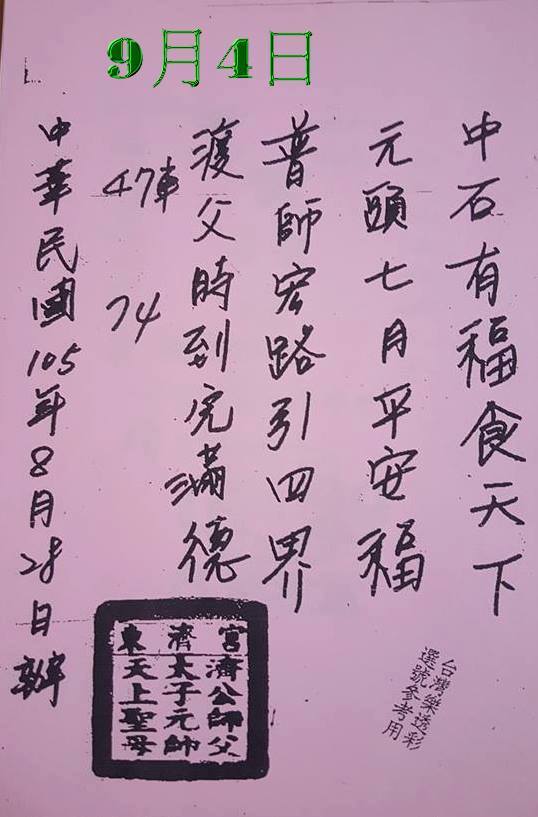 9月4日
中石有福食天下
元頭七月平安福
普師宏路引四界
渡父時到完滿德
47車
74
中華民國105年8月28日辦
東濟宮
濟公師父
太子元帥
天上聖母
台灣樂透彩
選號參考用